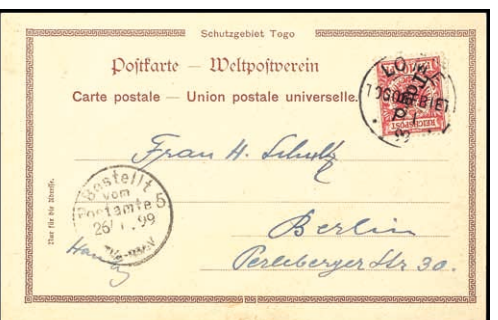 Schutzgebiet Togo
Postkarte — Weltpostverein
Carte postale — Union postale universelle.
LOME
TOGOGEBIET
REICHSPOST
Frau H. Schultz
Bestellt
vom
Postamte 5
26/1.99
Berlin
Perleberger Str 30.
Nur für die Adresse.